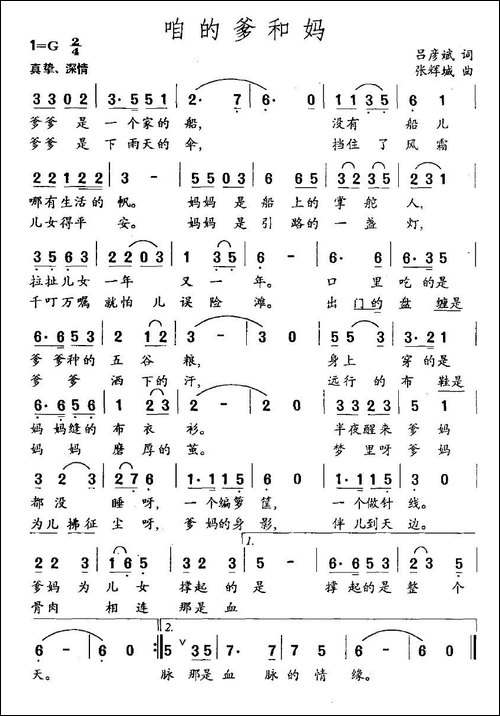 咱的爹和妈
1=G 2/4
真挚、深情
吕彦斌 词
张辉城 曲
3 3 0 2 | 3· 5 5 1 | 2· 7 | 6· 0 | 1 1 3 5 | 6 1 |
爹爹 是 一个家的 船, 没有 船 儿
爹爹 是 下雨天的 伞, 挡住 了 风霜
2 2 1 2 2 | 3 - | 5 5 0 3 | 6 5 6 5 | 3 2 3 5 | 2 3 1 |
哪有生活的 帆。 妈妈 是 船 上的 掌 舵 人,
儿女得平 安。 妈妈 是 引 路的 一 盏 灯,
3 5 6 3 | 2 2 0 3 | 1 3 5 | 6 - | 6 - | 6· 3 5 |
拉扯儿女 一年 又 一 年。 口 里 吃 的是
千叮万嘱 就怕 儿 误 险 滩。 出 门的 盘 缠是
6· 6 5 3 | 2 1 2 | 3 - | 3 0 | 3 5 | 6· 5 3 |
爹 爹种的 五 谷 粮, 身上 穿 的是
爹 爹 洒 下的 汗, 远行 的 布 鞋是
6· 6 5 6 | 1 2 3 | 2 - | 2 0 | 6 5 6 3 | 5 1 |
妈 妈缝的 布 衣 衫。 半夜醒来 爹 妈
妈 妈 磨 厚的 茧。 梦 里呀 爹 妈
3 2 3 | 2 7 6 | 1· 1 1 5 | 6 0 | 1· 1 1 5 | 6 1 |
都 没 睡 呀, 一 个编箩 筐, 一 个做针 线。
为儿 拂征 尘 呀, 爹 妈的身 影, 伴 儿到天 边。
1.
2 2 3 | 1 6 5 | 3 5 5 3 | 2 3 | 6· 6 5 3 | 2 1 2 3 |
爹妈 为 儿 女 撑起 的 是 撑 起的是 整 个
骨肉 相 连 那是 血
2.
6 - | 6 0 :‖ 5 3 5 | 7· 7 | 6· 5 7 | 6 - | 6 0 ‖
天。 脉 那是 血 脉 的 情 缘。